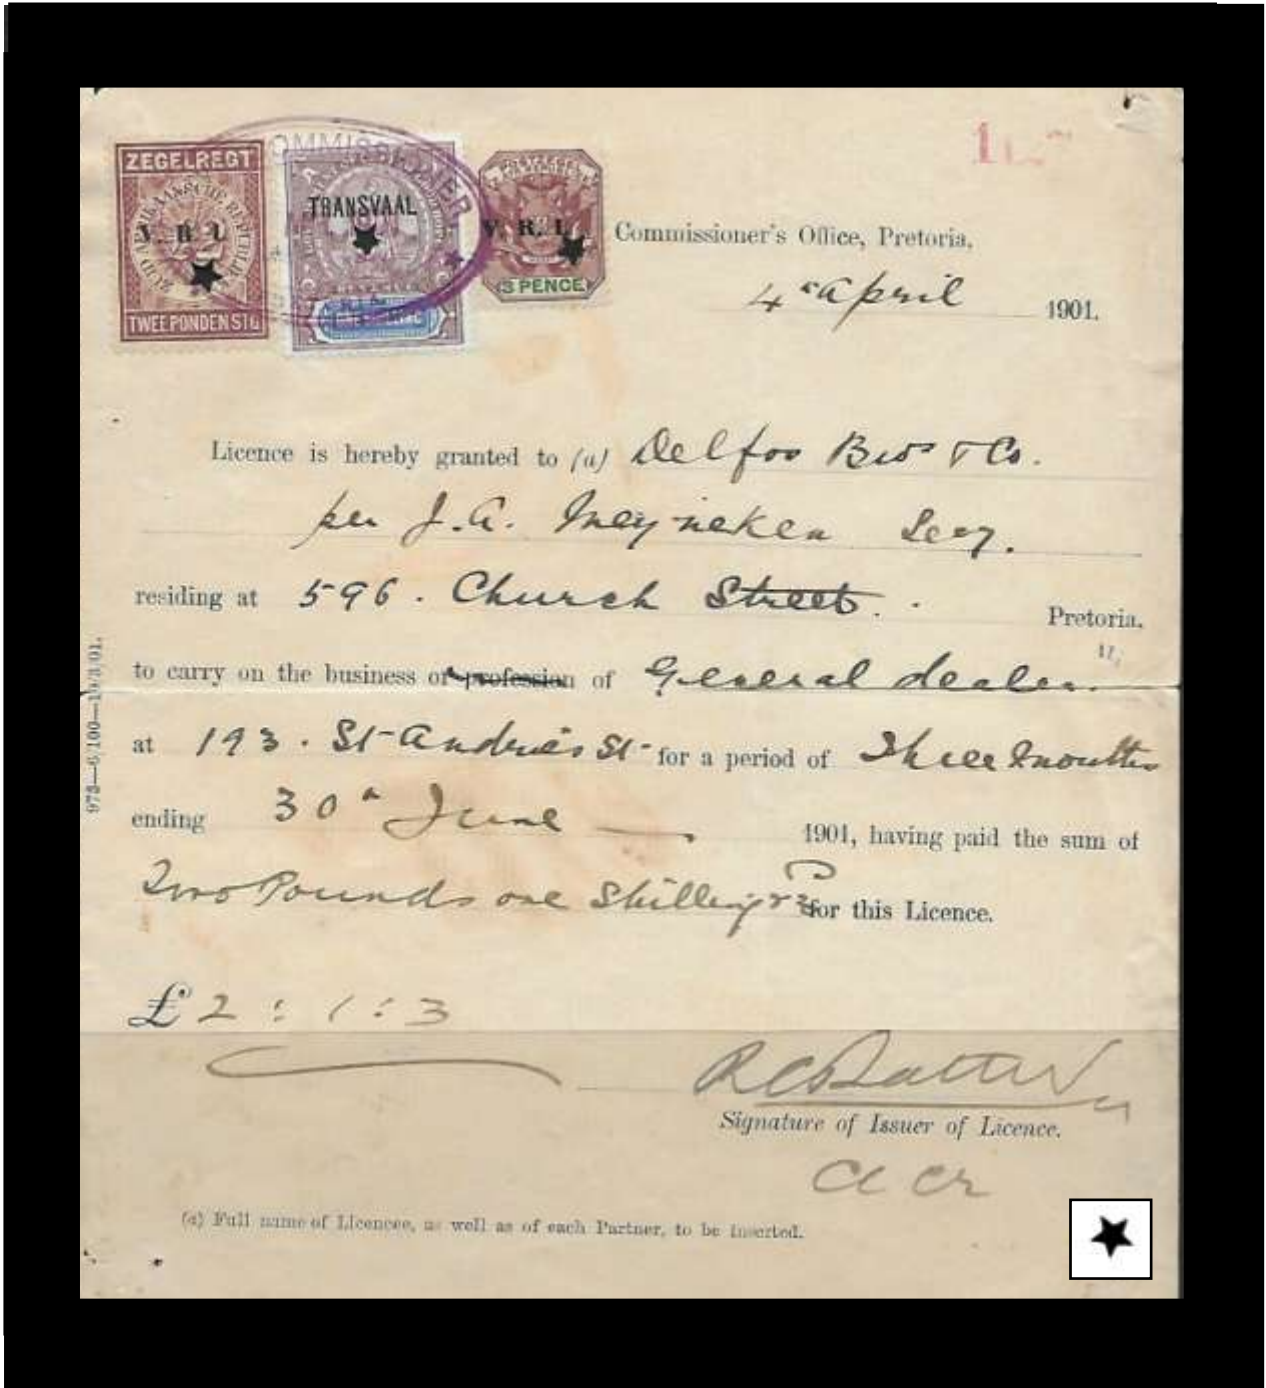 ZEGELREGT
ZUID AFRIKAANSCHE REPUBLIEK
V. R. I.
TWEE PONDEN STG
COMMISSIONER
TRANSVAAL
V. R. I.
3 PENCE
Commissioner's Office, Pretoria,
4th April 1901.
Licence is hereby granted to (a) Delfos Bros & Co.
per J. A. Meyneken Secy.
residing at 596. Church Street. Pretoria,
to carry on the business or profession of General dealer.
at 193. St Andries St for a period of Three Months
ending 30th June 1901, having paid the sum of
Two Pounds one Shilling & 3 for this Licence.
£ 2 : 1 : 3
Signature of Issuer of Licence.
(a) Full name of Licencee, as well as of each Partner, to be inserted.
973—6/100—19/3/01.